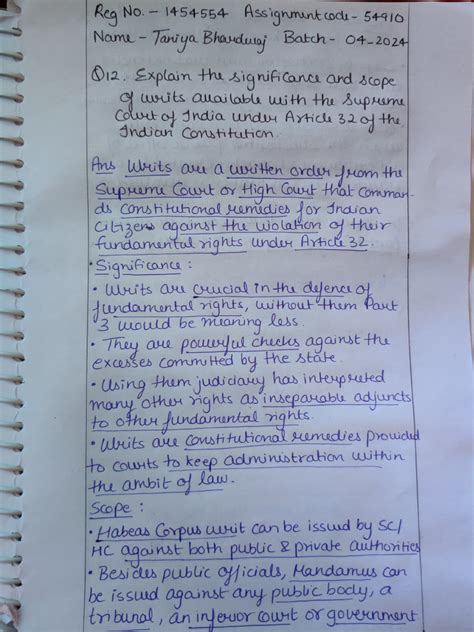 Reg No. - 1454554 Assignment code - 54910
Name - Taniya Bhardwaj Batch - 04-2024
Q12. Explain the significance and scope
of writs available with the Supreme
Court of India under Article 32 of the
Indian Constitution.
Ans Writs are a written order from the
Supreme Court or High Court that comman-
ds constitutional remedies for Indian
Citizens against the violation of their
fundamental rights under Article 32.
• Significance :
• Writs are crucial in the defence of
fundamental rights, without them Part
3 would be meaning less.
• They are powerful checks against the
excesses committed by the state.
• Using them judiciary has interpreted
many other rights as inseparable adjuncts
to other fundamental rights.
• Writs are constitutional remedies provided
to courts to keep administration within
the ambit of law.
Scope :
• Habeas Corpus writ can be issued by SC/
HC against both public & private authorities
• Besides public officials, Mandamus can
be issued against any public body, a
tribunal, an inferior court or government